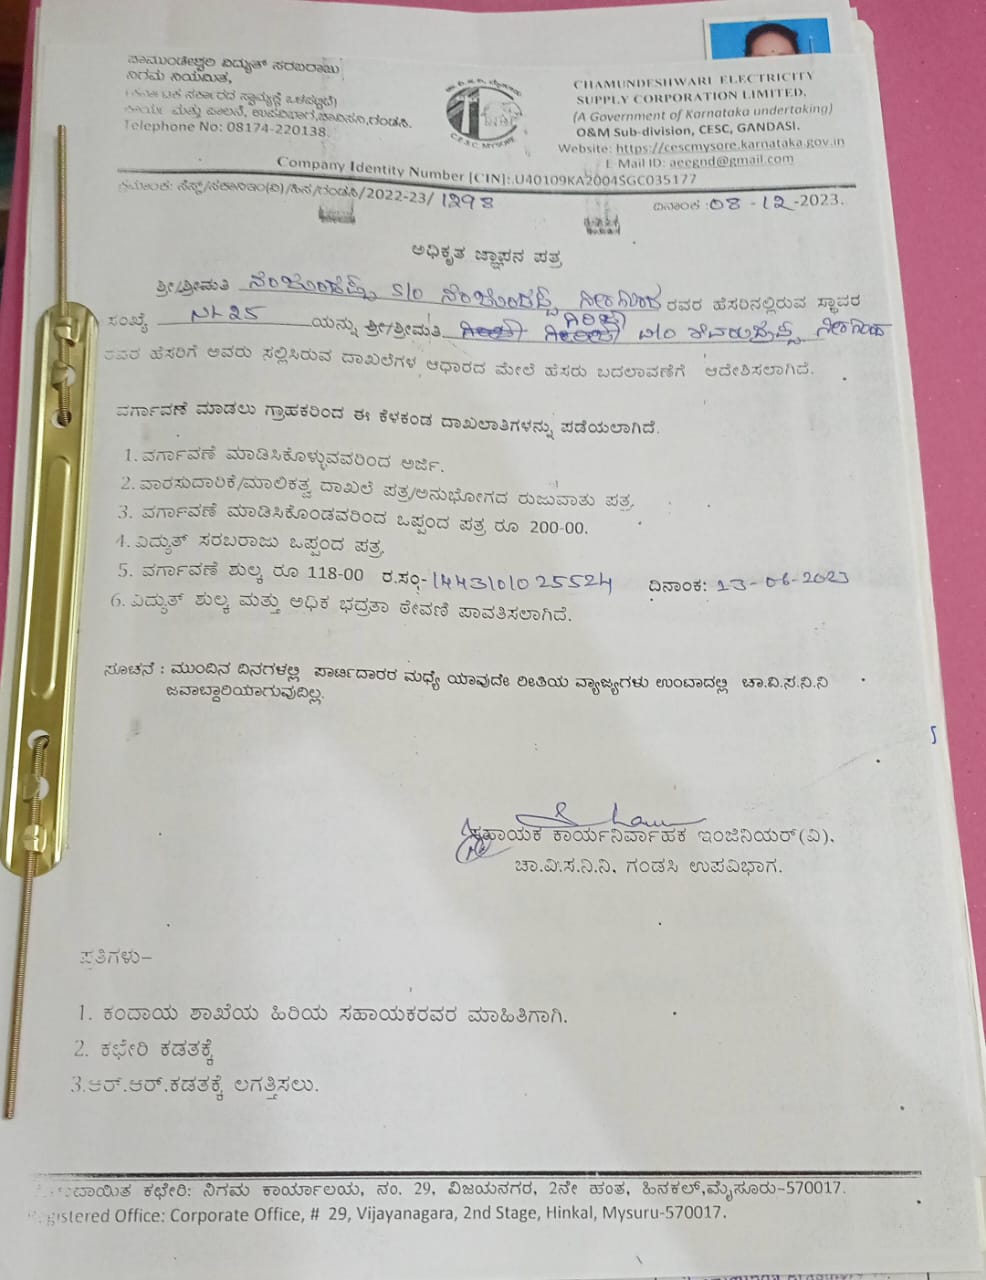 ಚಾಮುಂಡೇಶ್ವರಿ ವಿದ್ಯುತ್ ಸರಬರಾಜು
ನಿಗಮ ನಿಯಮಿತ,
(ಕರ್ನಾಟಕ ಸರ್ಕಾರದ ಸ್ವಾಮ್ಯಕ್ಕೆ ಒಳಪಟ್ಟಿದೆ)
ಕಾರ್ಯ ಮತ್ತು ಪಾಲನೆ, ಉಪವಿಭಾಗ,ಚಾವಿಸನಿ,ಗಂಡಸಿ.
Telephone No: 08174-220138
C.E.S.C. MYSORE
CHAMUNDESHWARI ELECTRICITY
SUPPLY CORPORATION LIMITED.
(A Government of Karnataka undertaking)
O&M Sub-division, CESC, GANDASI.
Website: https://cescmysore.karnataka.gov.in
E Mail ID: aeegnd@gmail.com
Company Identity Number [CIN]:.U40109KA2004SGC035177
/2022-23/ 1298 ದಿನಾಂಕ :08-12-2023.
ಅಧಿಕೃತ ಜ್ಞಾಪನ ಪತ್ರ
ಶ್ರೀ/ಶ್ರೀಮತಿ S/o ರವರ ಹೆಸರಿನಲ್ಲಿರುವ ಸ್ಥಾವರ
ಸಂಖ್ಯೆ NL25 ಯನ್ನು ಶ್ರೀ/ಶ್ರೀಮತಿ
ರವರ ಹೆಸರಿಗೆ ಅವರು ಸಲ್ಲಿಸಿರುವ ದಾಖಲೆಗಳ ಆಧಾರದ ಮೇಲೆ ಹೆಸರು ಬದಲಾವಣೆಗೆ ಆದೇಶಿಸಲಾಗಿದೆ.
ವರ್ಗಾವಣೆ ಮಾಡಲು ಗ್ರಾಹಕರಿಂದ ಈ ಕೆಳಕಂಡ ದಾಖಲಾತಿಗಳನ್ನು ಪಡೆಯಲಾಗಿದೆ.
1. ವರ್ಗಾವಣೆ ಮಾಡಿಸಿಕೊಳ್ಳುವವರಿಂದ ಅರ್ಜಿ.
2. ವಾರಸುದಾರಿಕೆ/ಮಾಲಿಕತ್ವ ದಾಖಲೆ ಪತ್ರ/ಅನುಭೋಗದ ರುಜುವಾತು ಪತ್ರ.
3. ವರ್ಗಾವಣೆ ಮಾಡಿಸಿಕೊಂಡವರಿಂದ ಒಪ್ಪಂದ ಪತ್ರ ರೂ 200-00.
4. ವಿದ್ಯುತ್ ಸರಬರಾಜು ಒಪ್ಪಂದ ಪತ್ರ.
5. ವರ್ಗಾವಣೆ ಶುಲ್ಕ ರೂ 118-00 ರ.ಸಂ:- 144310102552೬ ದಿನಾಂಕ: 23-06-2023
6. ವಿದ್ಯುತ್ ಶುಲ್ಕ ಮತ್ತು ಅಧಿಕ ಭದ್ರತಾ ಠೇವಣಿ ಪಾವತಿಸಲಾಗಿದೆ.
ಸೂಚನೆ : ಮುಂದಿನ ದಿನಗಳಲ್ಲಿ ಪಾರ್ಟಿದಾರರ ಮಧ್ಯೆ ಯಾವುದೇ ರೀತಿಯ ವ್ಯಾಜ್ಯಗಳು ಉಂಟಾದಲ್ಲಿ ಚಾ.ವಿ.ಸ.ನಿ.ನಿ
ಜವಾಬ್ದಾರಿಯಾಗುವುದಿಲ್ಲ.
ಸಹಾಯಕ ಕಾರ್ಯನಿರ್ವಾಹಕ ಇಂಜಿನಿಯರ್(ವಿ).
ಚಾ.ವಿ.ಸ.ನಿ.ನಿ. ಗಂಡಸಿ ಉಪವಿಭಾಗ.
ಪ್ರತಿಗಳು-
1. ಕಂದಾಯ ಶಾಖೆಯ ಹಿರಿಯ ಸಹಾಯಕರವರ ಮಾಹಿತಿಗಾಗಿ.
2. ಕಛೇರಿ ಕಡತಕ್ಕೆ
3.ಆರ್.ಆರ್.ಕಡತಕ್ಕೆ ಲಗತ್ತಿಸಲು.
ಕಛೇರಿ: ನಿಗಮ ಕಾರ್ಯಾಲಯ, ನಂ. 29, ವಿಜಯನಗರ, 2ನೇ ಹಂತ, ಹಿನಕಲ್,ಮೈಸೂರು-570017.
Registered Office: Corporate Office, # 29, Vijayanagara, 2nd Stage, Hinkal, Mysuru-570017.